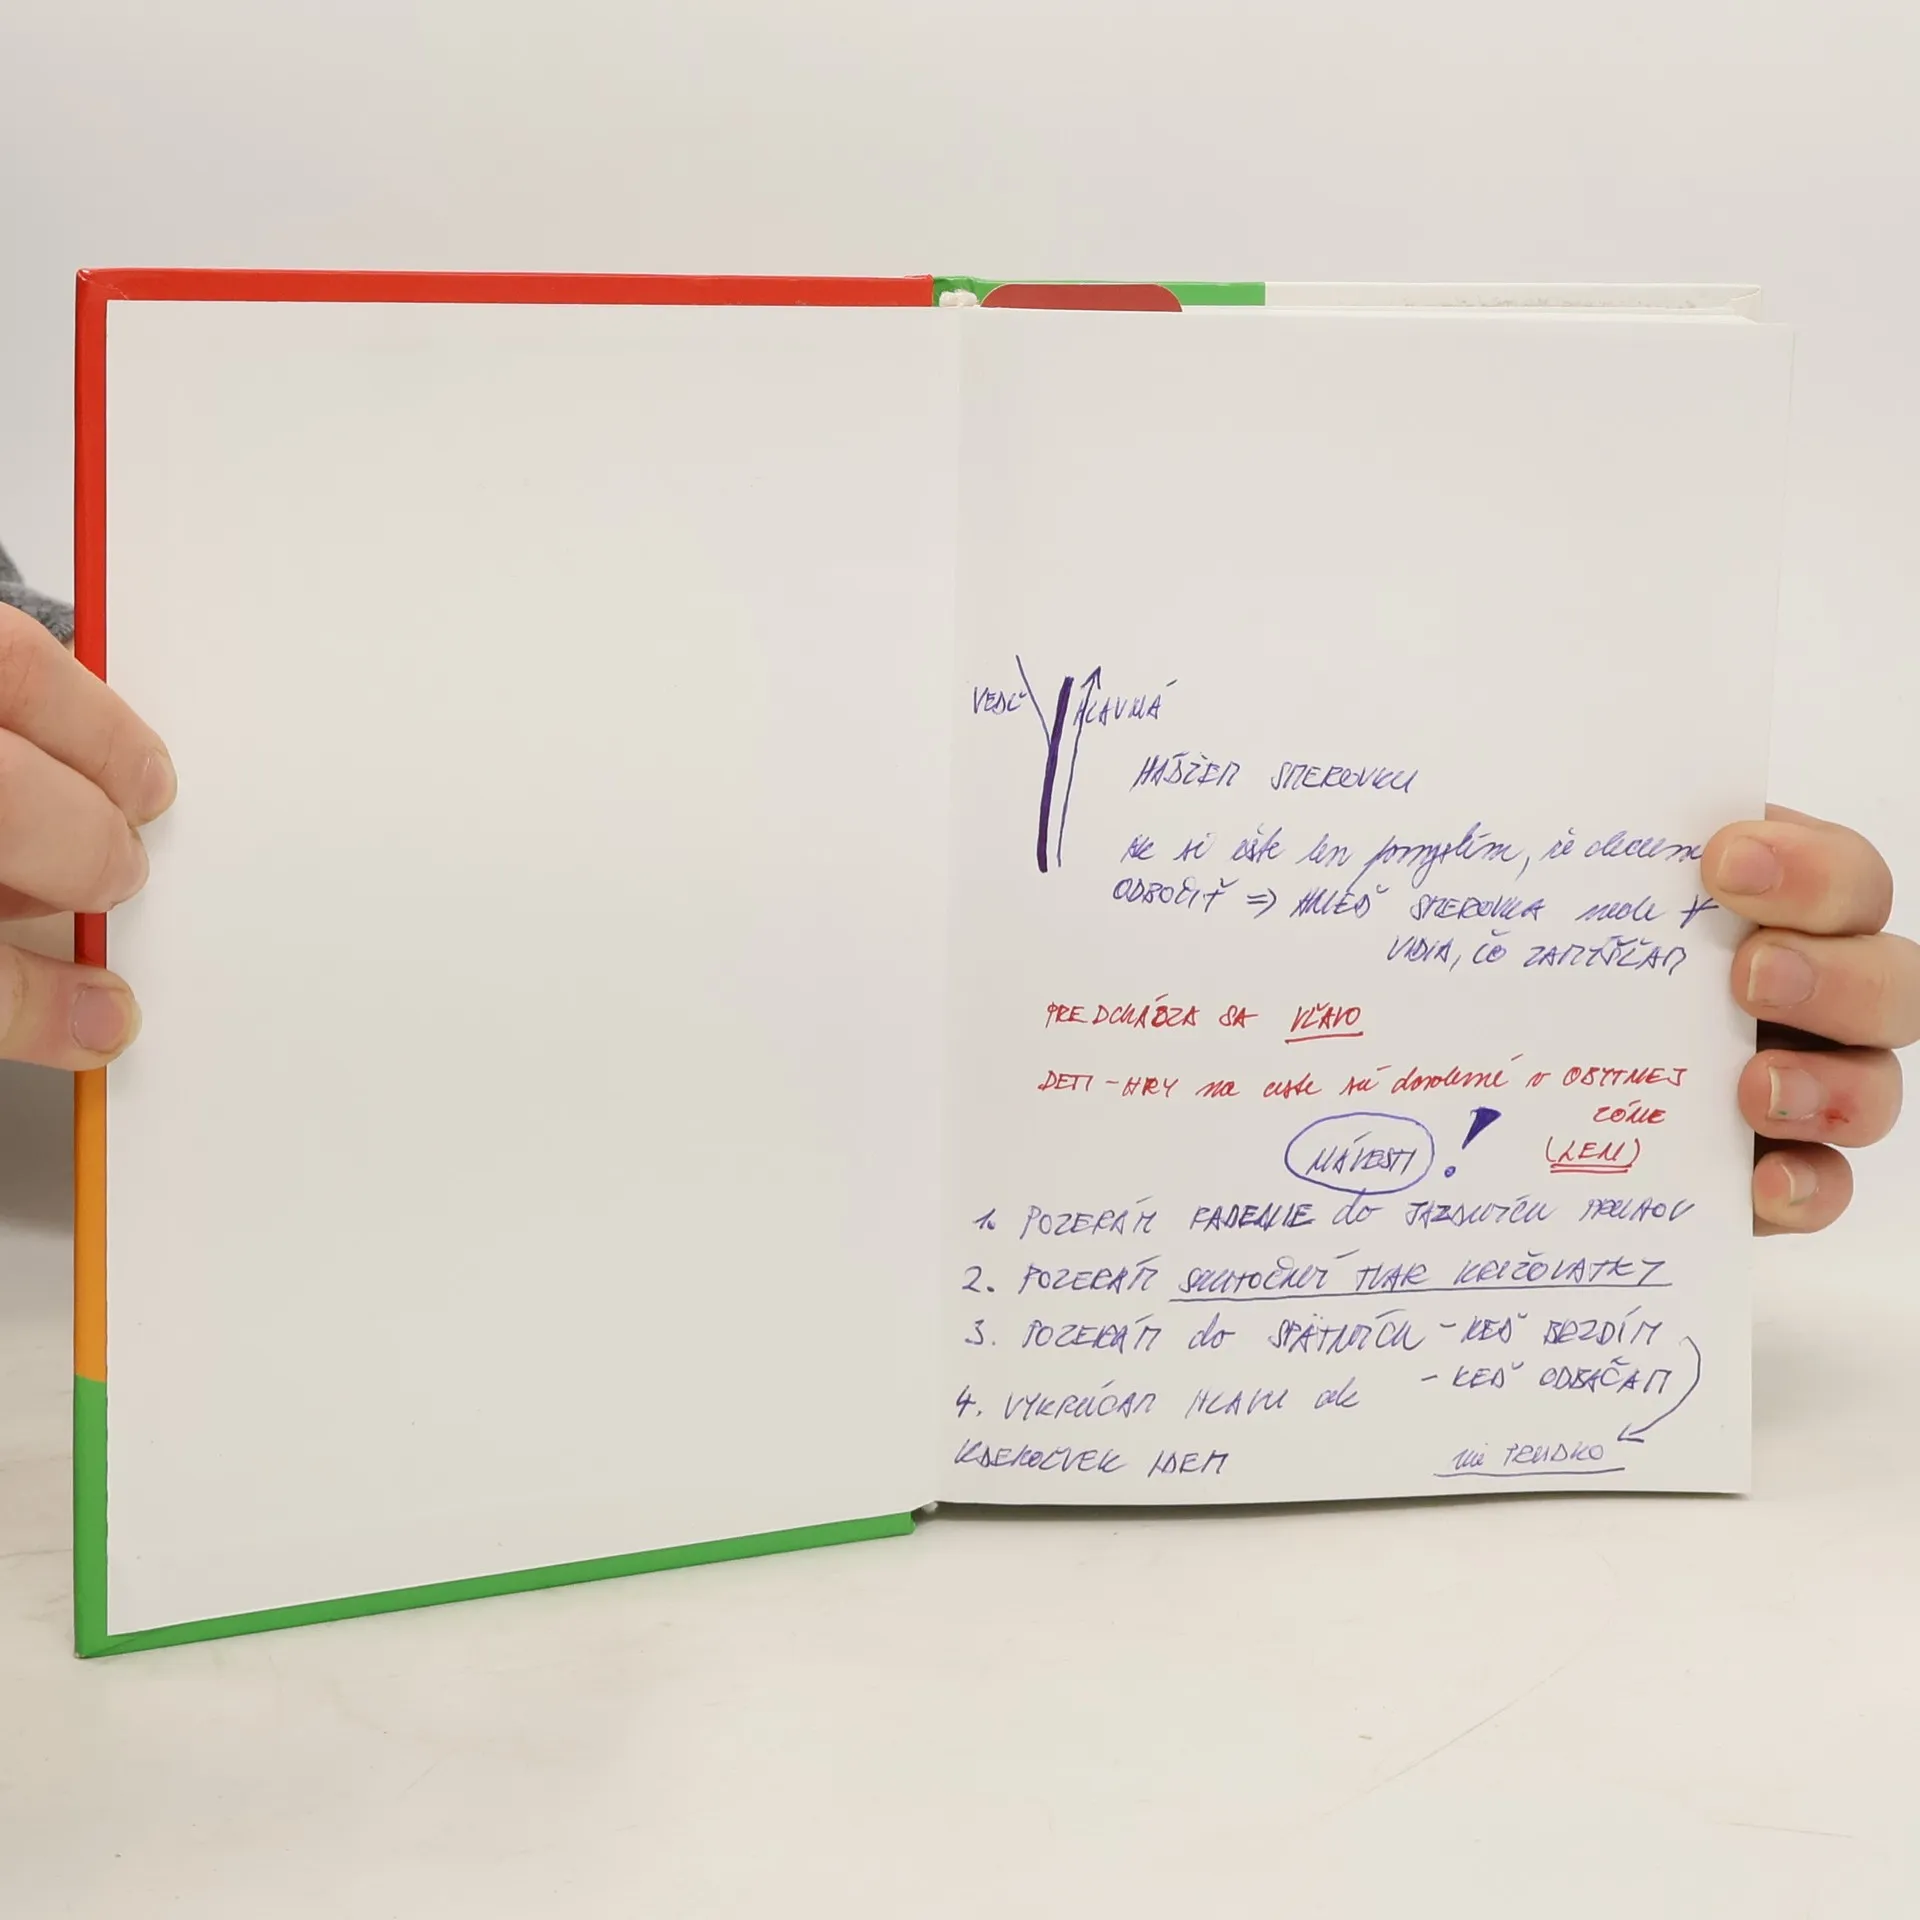 VEDĽ HLAVNÁ
HÁDŽEM SMEROVKU
Ak si ešte len pomyslím, že chcem
ODBOČIŤ => HNEĎ SMEROVKA nech ∀
VIDIA, ČO ZAMÝŠĽAM
PREDCHÁDZA SA VĽAVO
DETI - HRY na ceste sú dovolené v OBYTNEJ
ZÓNE
(LEN)
NÁVESTI !
1. POZERÁM RADENIE do JAZDNÝCH PRUHOV
2. POZERÁM SKUTOČNÝ TVAR KRIŽOVATKY
3. POZERÁM do SPÄTNÝCH - KEĎ BRZDÍM
- KEĎ ODBÁČAM
4. VYKRÚCAM HLAVU ak
KDEKOĽVEK IDEM
nie PRUDKO